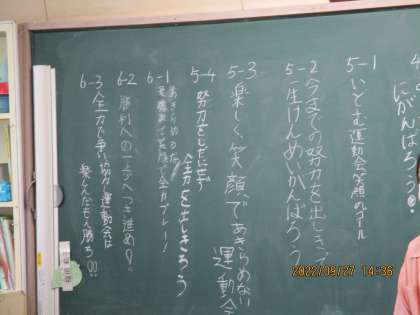 にがんばろう
5-1 いどむ運動会笑顔のゴール
5-2 今までの努力を出しきって
一生けんめいがんばろう
5-3 楽しく、笑顔であきらめない
運動会
5-4 努力をむだにせず
全力を出しきろう
6-1 あきらめるな
笑顔で全力プレー!
6-2 勝利への一歩へつき進め!
6-3 全力で争い協力し運動会は
楽しんだもん勝ち!!
2022/09/27 14:36